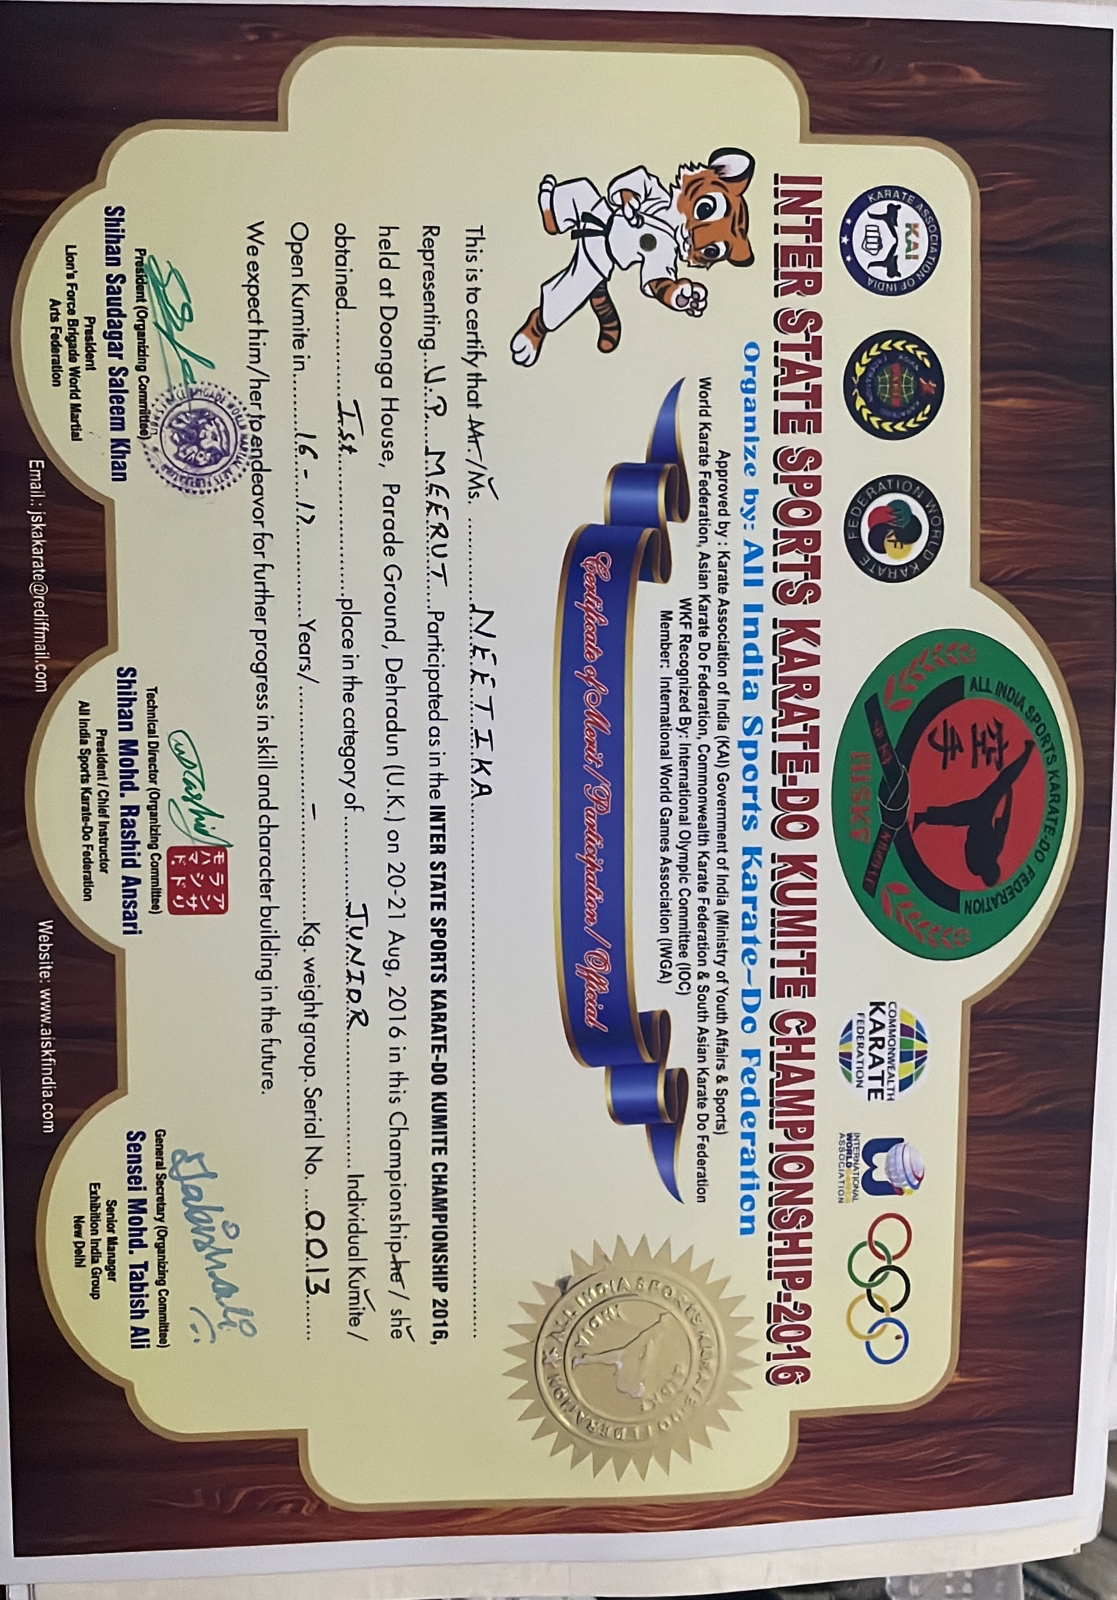 ALL INDIA SPORTS KARATE-DO FEDERATION
空手
AISKF
KARATE ASSOCIATION OF INDIA
KAI
WORLD KARATE FEDERATION
COMMONWEALTH
KARATE
FEDERATION
INTERNATIONAL
WORLD GAMES
ASSOCIATION
INTER STATE SPORTS KARATE-DO KUMITE CHAMPIONSHIP-2016
Organize by: All India Sports Karate-Do Federation
Approved by : Karate Association of India (KAI) Government of India (Ministry of Youth Affairs & Sports)
World Karate Federation, Asian Karate Do Federation, Commonwealth Karate Federation & South Asian Karate Do Federation
WKF Recognized By: International Olympic Committee (IOC)
Member: International World Games Association (IWGA)
Certificate of Merit / Participation / Official
ALL INDIA SPORTS KARATE DO FEDERATION
INDIA
This is to certify that Mr./Ms. NEETIKA
Representing U.P. MEERUT Participated as in the INTER STATE SPORTS KARATE-DO KUMITE CHAMPIONSHIP 2016,
held at Doonga House, Parade Ground, Dehradun (U.K.) on 20-21 Aug, 2016 in this Championship he / she
obtained Ist place in the category of JUNIOR Individual Kumite /
Open Kumite in 16-17 Years/ - Kg. weight group. Serial No. 0013
We expect him/her to endeavor for further progress in skill and character building in the future.
アンサリ
ラシド
モハマド
Tabish ali
President (Organizing Committee)
Shihan Saudagar Saleem Khan
President
Lion's Force Brigade World Martial
Arts Federation
Technical Director (Organizing Committee)
Shihan Mohd. Rashid Ansari
President / Chief Instructor
All India Sports Karate-Do Federation
General Secretary (Organizing Committee)
Sensei Mohd. Tabish Ali
Senior Manager
Exhibition India Group
New Delhi
Email.: jskakarate@rediffmail.com
Website: www.aiskfindia.com